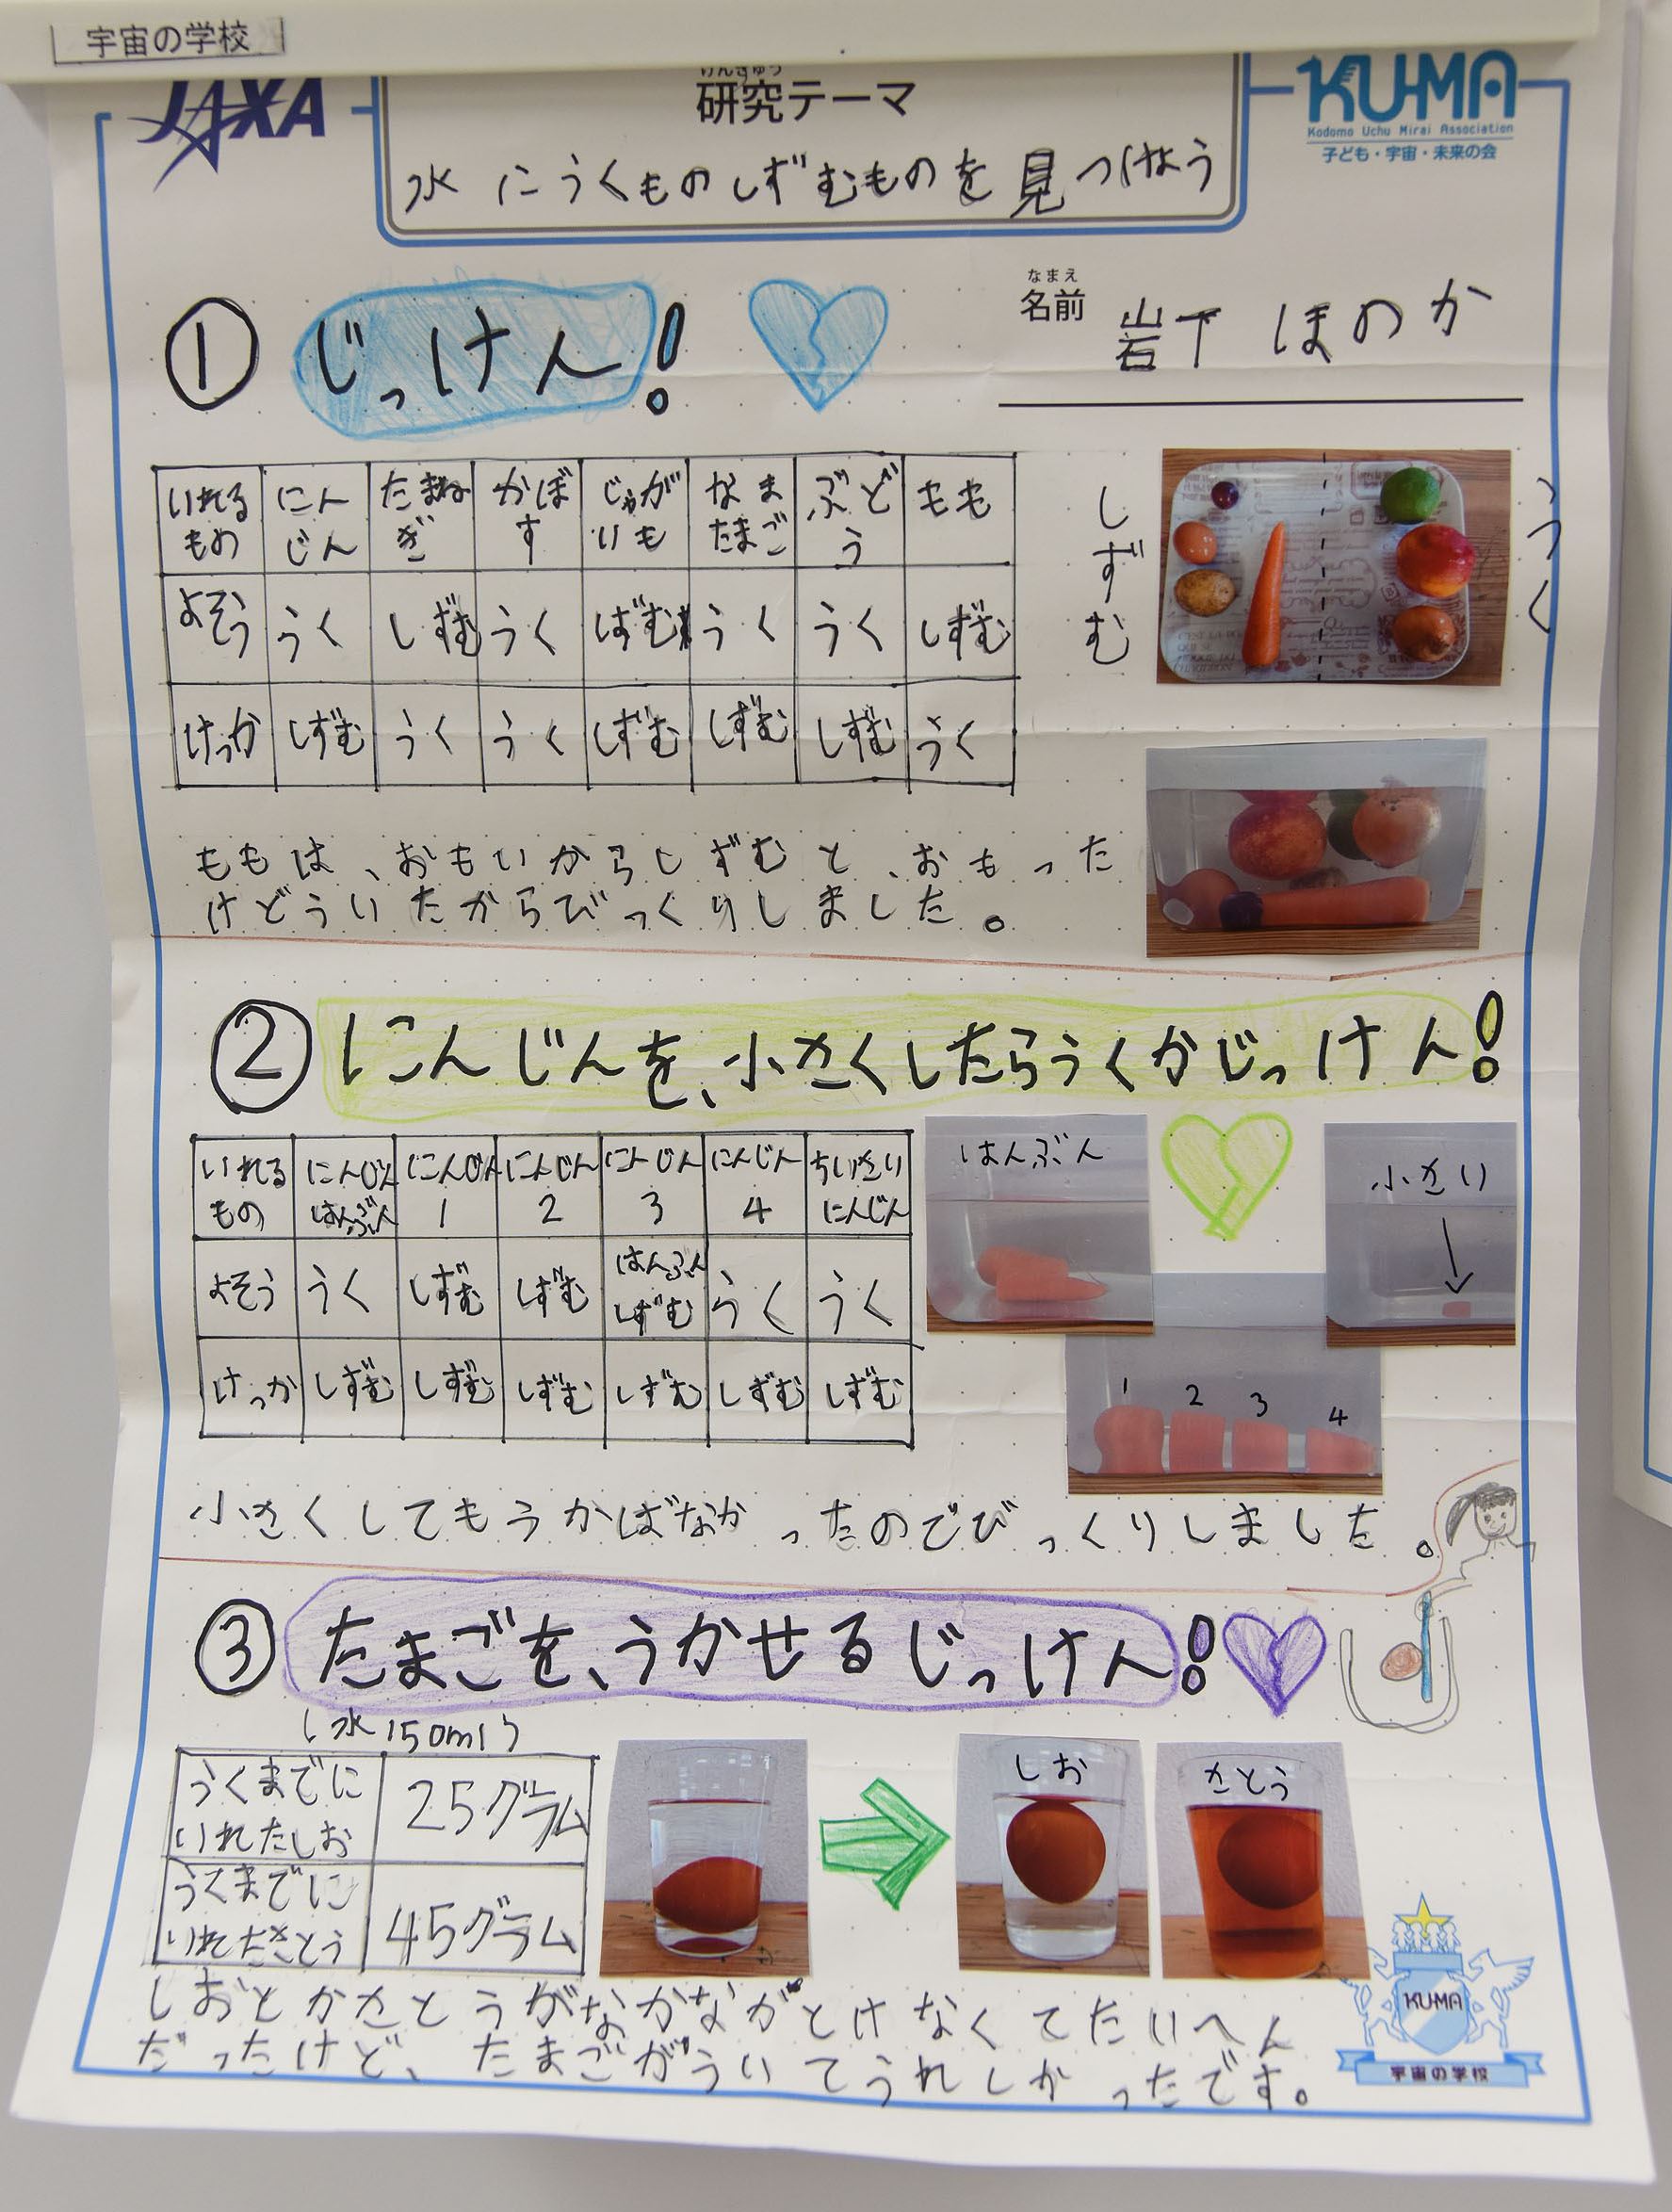 宇宙の学校
JAXA
けんきゅう
研究テーマ
KU-MA
Kodomo Uchu Mirai Association
子ども・宇宙・未来の会
水にうくものしずむものを見つけよう
① じっけん!
なまえ
名前 岩下 ほのか
いれるもの にんじん たまねぎ かぼす じゃがいも なまたまご ぶどう もも
よそう うく しずむ うく しずむ うく うく しずむ
けっか しずむ うく うく しずむ しずむ しずむ うく
しずむ
うく
ももは、おもいからしずむと、おもった
けどういたからびっくりしました。
② にんじんを、小さくしたらうくかじっけん!
いれるもの にんじんはんぶん にんじん1 にんじん2 にんじん3 にんじん4 ちいさいにんじん
よそう うく しずむ しずむ はんぶんしずむ うく うく
けっか しずむ しずむ しずむ しずむ しずむ しずむ
はんぶん
小さい
1 2 3 4
小さくしてもうかばなかったのでびっくりしました。
③ たまごを、うかせるじっけん!
(水150ml)
うくまでにいれたしお 25グラム
うくまでにいれたさとう 45グラム
しお
さとう
しおとかさとうがなかなかとけなくてたいへん
だったけど、たまごがういてうれしかったです。
KU-MA
宇宙の学校